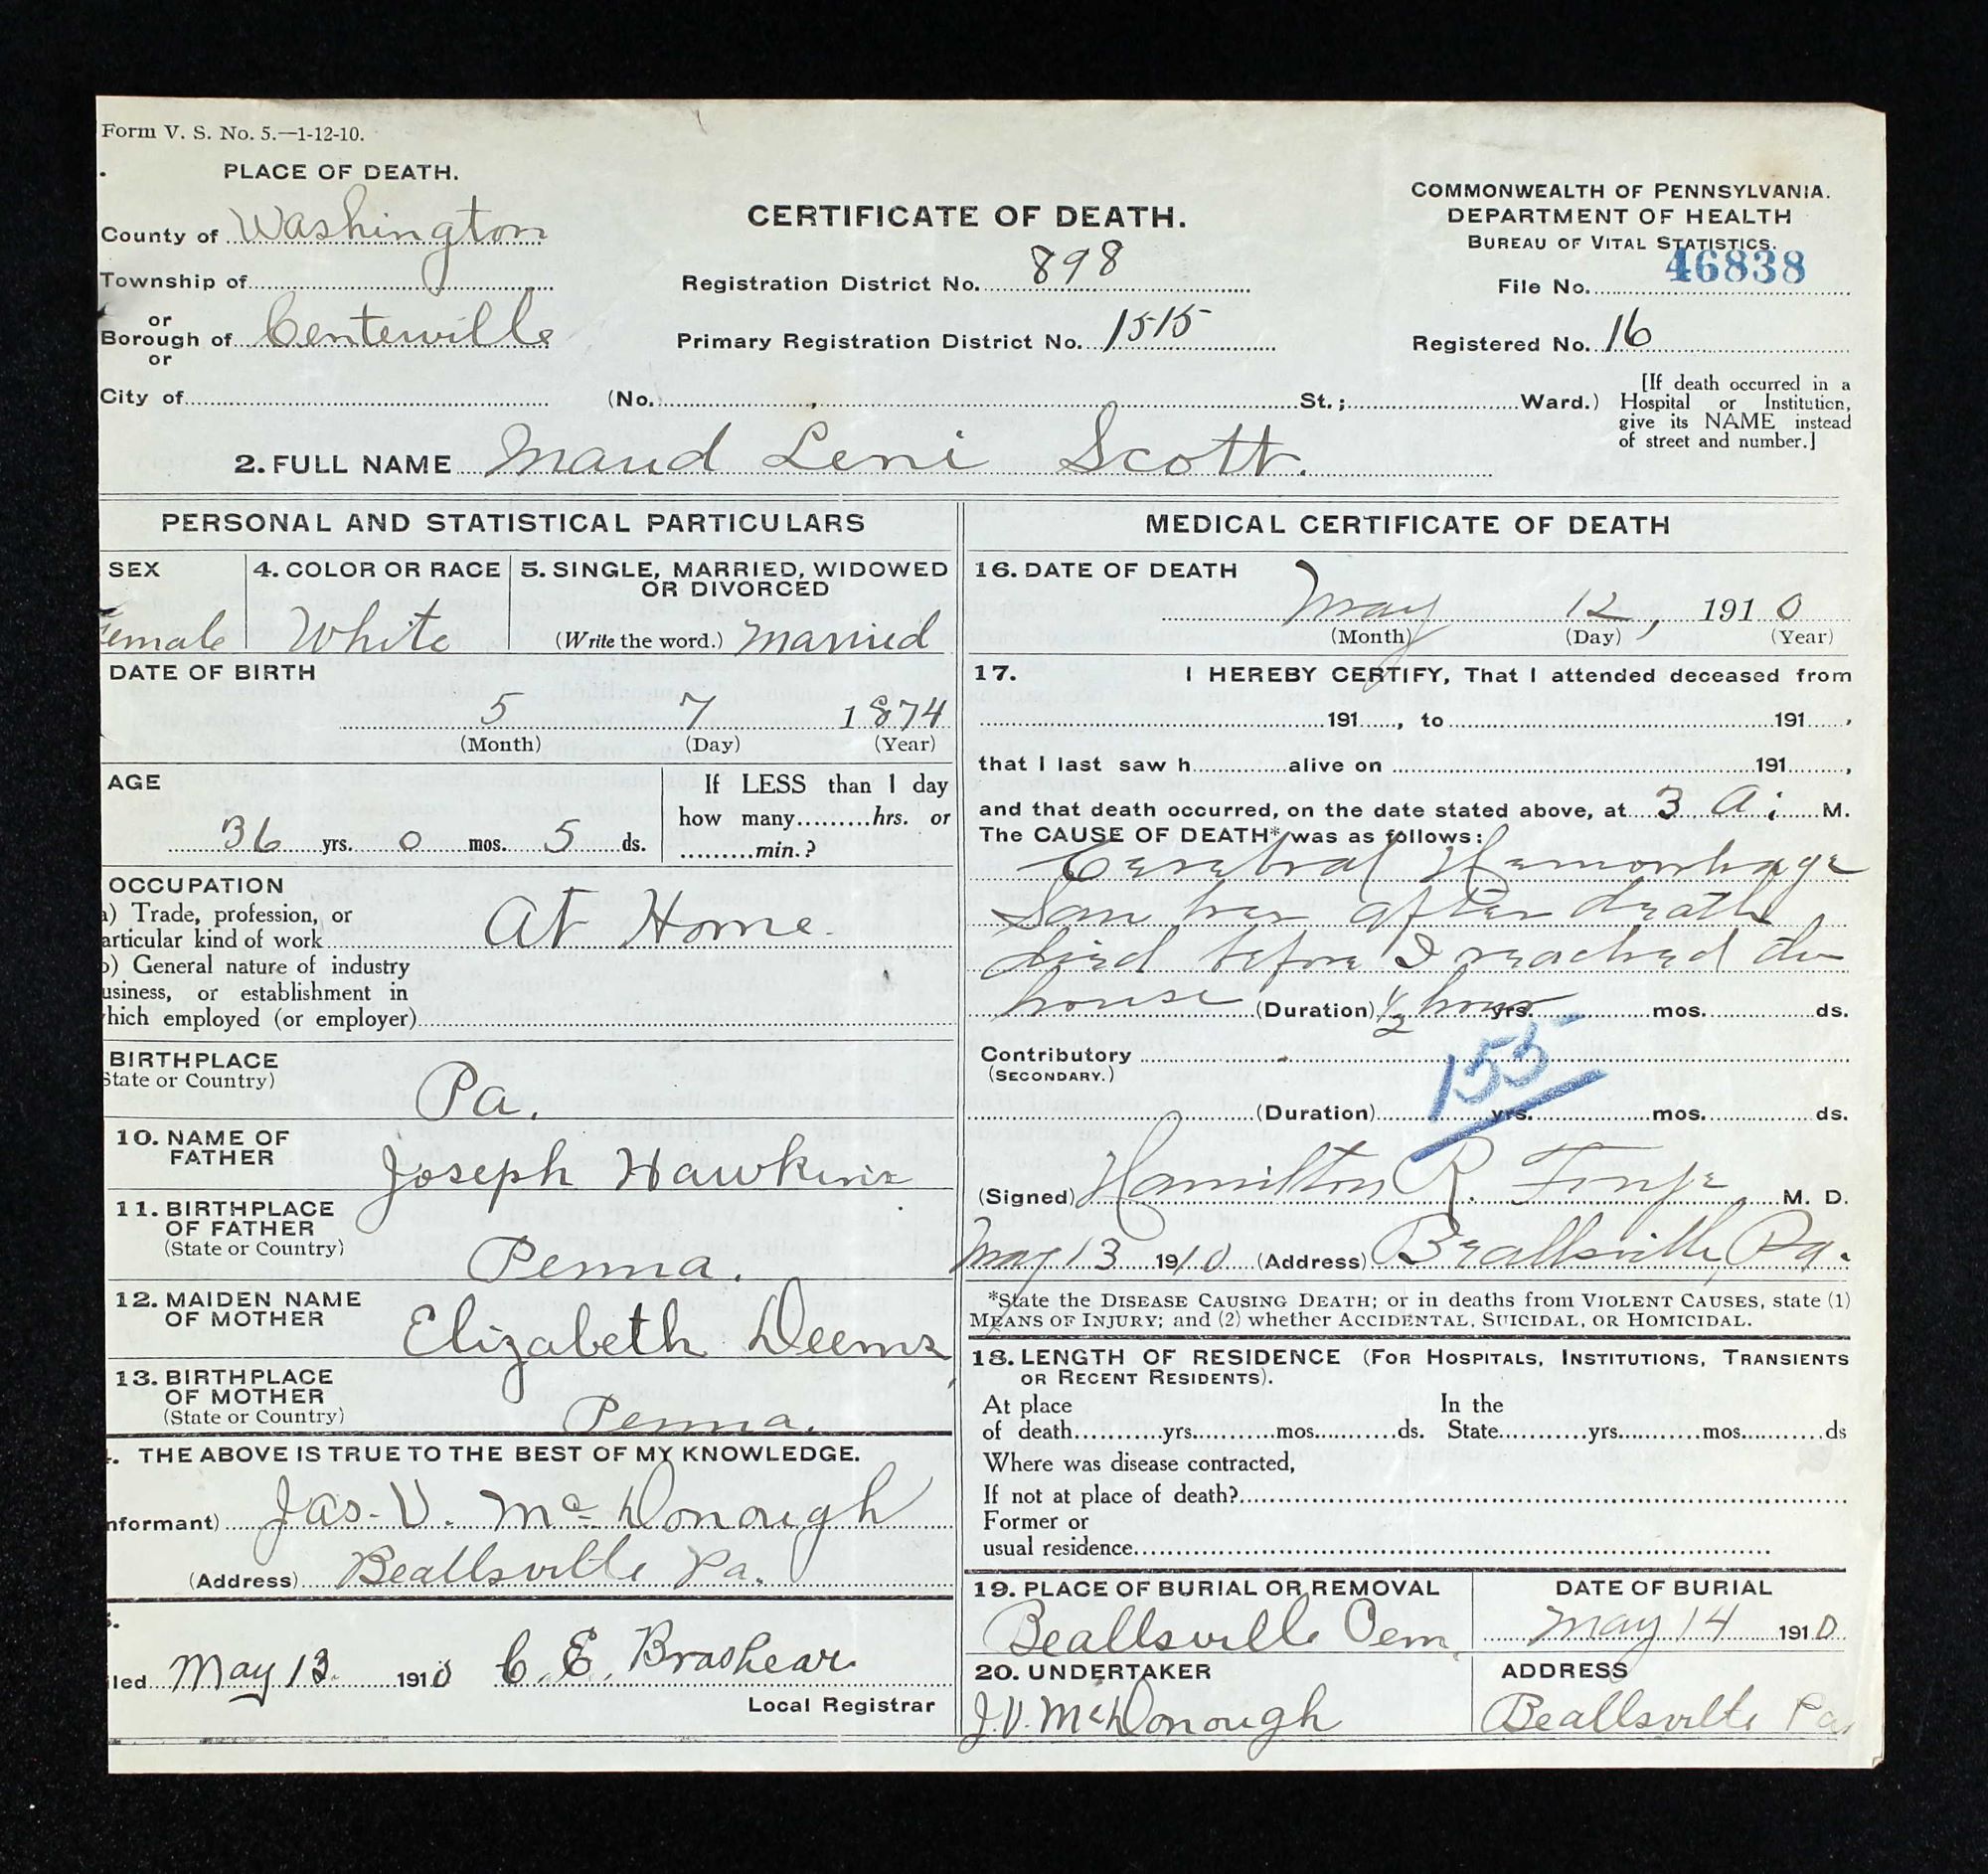 Form V. S. No. 5.—1-12-10.
PLACE OF DEATH.
County of Washington
Township of
or
Borough of Centerville
or
City of
CERTIFICATE OF DEATH.
Registration District No. 898
Primary Registration District No. 1515
(No. , St.; Ward.)
COMMONWEALTH OF PENNSYLVANIA.
DEPARTMENT OF HEALTH
BUREAU OF VITAL STATISTICS.
File No. 46838
Registered No. 16
[If death occurred in a
Hospital or Institution,
give its NAME instead
of street and number.]
2. FULL NAME Maud Leni Scott.
PERSONAL AND STATISTICAL PARTICULARS
SEX
emale
4. COLOR OR RACE
White
5. SINGLE, MARRIED, WIDOWED
OR DIVORCED
(Write the word.) Married
DATE OF BIRTH
5 7 1874
(Month) (Day) (Year)
AGE
36 yrs. 0 mos. 5 ds.
If LESS than 1 day
how many hrs. or
min.?
OCCUPATION
a) Trade, profession, or
articular kind of work At Home
b) General nature of industry
usiness, or establishment in
hich employed (or employer)
BIRTHPLACE
State or Country)
Pa.
10. NAME OF
FATHER
Joseph Hawkins
11. BIRTHPLACE
OF FATHER
(State or Country)
Penna.
12. MAIDEN NAME
OF MOTHER
Elizabeth Deems
13. BIRTHPLACE
OF MOTHER
(State or Country)
Penna.
. THE ABOVE IS TRUE TO THE BEST OF MY KNOWLEDGE.
nformant) Jas. V. McDonough
(Address) Beallsville Pa.
led May 13 1910 C. E. Brashear
Local Registrar
MEDICAL CERTIFICATE OF DEATH
16. DATE OF DEATH
May 12, 1910
(Month) (Day) (Year)
17. I HEREBY CERTIFY, That I attended deceased from
191 , to 191 ,
that I last saw h alive on 191 ,
and that death occurred, on the date stated above, at 3 A. M.
The CAUSE OF DEATH* was as follows:
Cerebral Hemorhage
Saw her after death
died before I reached the
house (Duration) 1/2 hour yrs. mos. ds.
Contributory
(SECONDARY.)
155
(Duration) yrs. mos. ds.
(Signed) Hamilton R. M. D.
May 13 1910 (Address) Beallsville, Pa.
*State the DISEASE CAUSING DEATH; or in deaths from VIOLENT CAUSES, state (1)
MEANS OF INJURY; and (2) whether ACCIDENTAL, SUICIDAL, OR HOMICIDAL.
18. LENGTH OF RESIDENCE (FOR HOSPITALS, INSTITUTIONS, TRANSIENTS
OR RECENT RESIDENTS).
At place In the
of death yrs. mos. ds. State yrs. mos. ds
Where was disease contracted,
If not at place of death?
Former or
usual residence
19. PLACE OF BURIAL OR REMOVAL
Beallsville Cem.
DATE OF BURIAL
May 14 1910
20. UNDERTAKER
J.V. McDonough
ADDRESS
Beallsville Pa